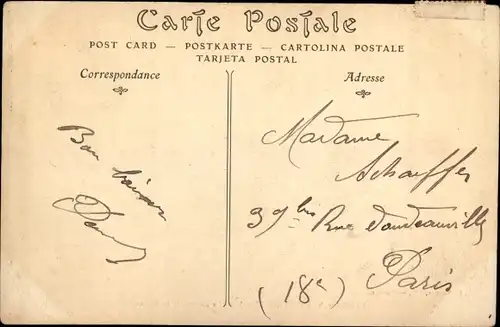 Carte Postale
POST CARD — POSTKARTE — CARTOLINA POSTALE
TARJETA POSTAL
Correspondance
Adresse
Bon baiser
Madame
Schaeffer
39 bis Rue Doudeauville
Paris
(18e)